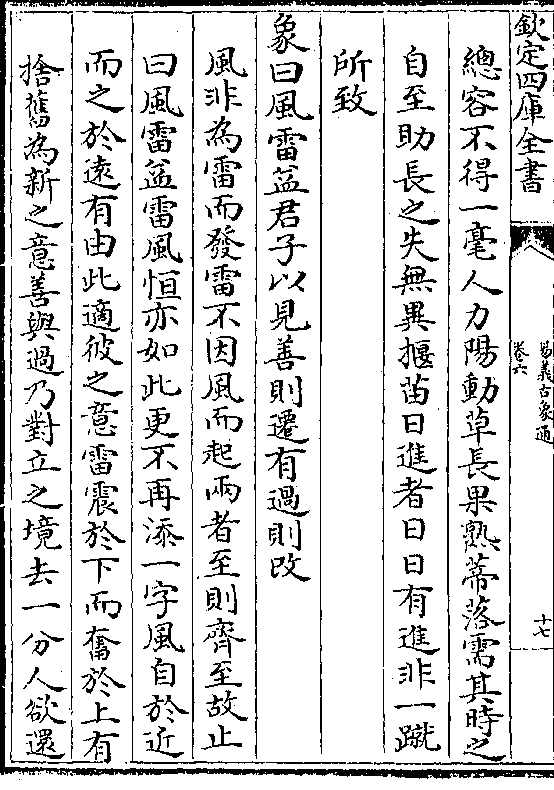 欽定四庫全書
易義古象通
卷六
十七
總容不得一毫人力陽動草長果熟蒂落需其時之
自至助長之失無異揠苗日進者日日有進非一蹴
所致
象曰風雷益君子以見善則遷有過則改
風非為雷而發雷不因風而起兩者至則齊至故止
曰風雷益雷風恒亦如此更不再添一字風自於近
而之於遠有由此適彼之意雷震於下而奮於上有
捨舊為新之意善與過乃對立之境去一分人欲還